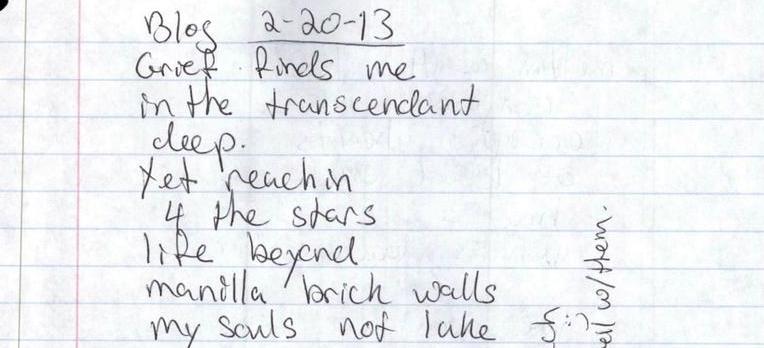 Blog 2-20-13
Grief finds me
in the transcendant
deep.
Yet reachin
4 the stars
life beyond
manilla brick walls
my souls not luke
w/them.
:)